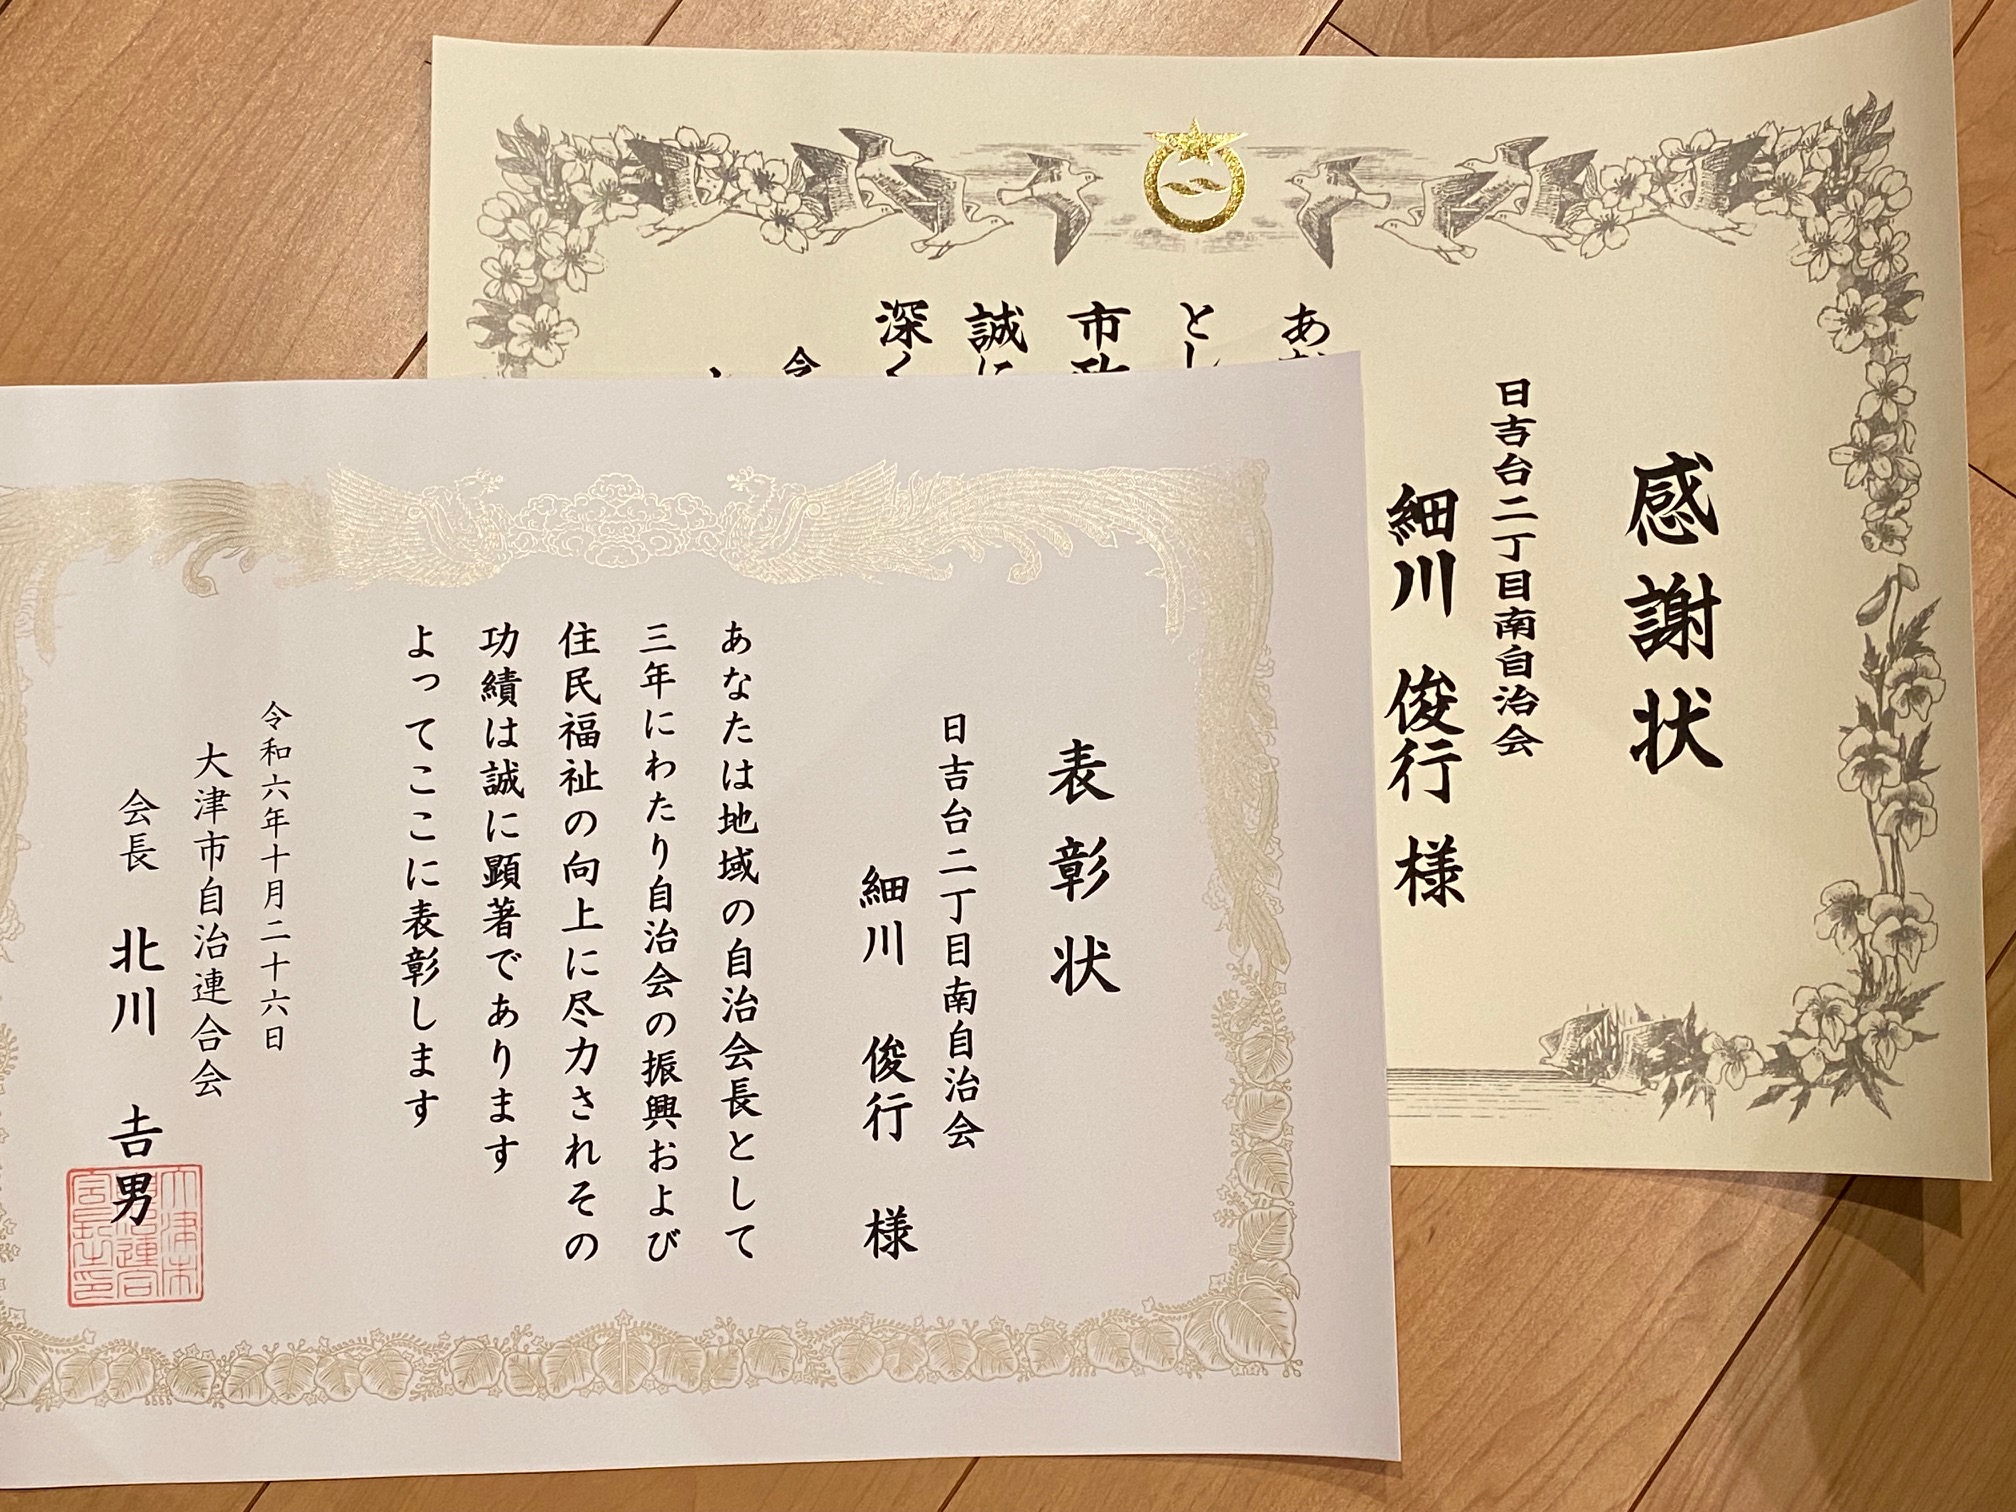 感謝状
日吉台二丁目南自治会
細川 俊行 様
あ
とし
市政
誠に
深く
令
表彰状
日吉台二丁目南自治会
細川 俊行 様
あなたは地域の自治会長として
三年にわたり自治会の振興および
住民福祉の向上に尽力されその
功績は誠に顕著であります
よってここに表彰します
令和六年十月二十六日
大津市自治連合会
会長 北川 𠮷男